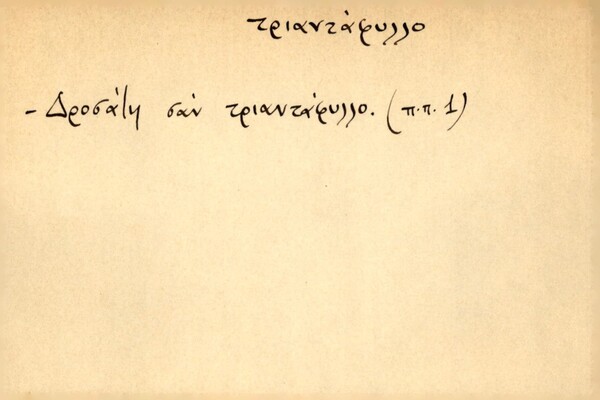 τριαντάφυλλο
- Δροσάτη σὰν τριαντάφυλλο. (π.π. 1)